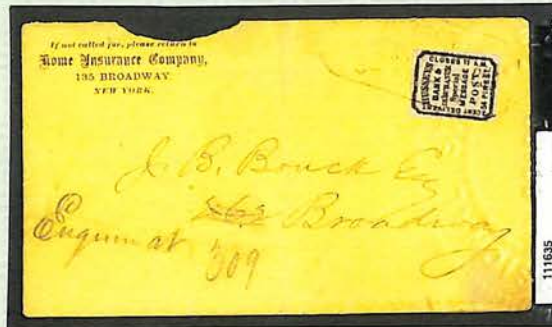 If not called for, please return to
Home Insurance Company,
135 BROADWAY.
NEW YORK.
HUSSEY'S
BANK &
INSURANCE
Special
MESSAGE
POST
54 PINE ST.
CENT DELIVERY
J. B. Bouck Esq
Broadway
Enquire at 309
111635